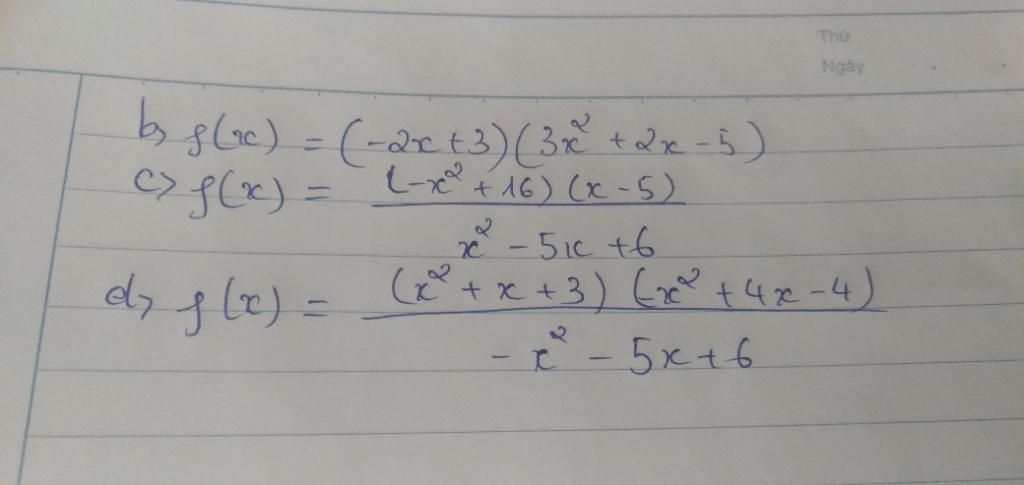 Thứ
Ngày
b, f(x) = (-2x+3)(3x² + 2x - 5)
c> f(x) = \frac{(-x² + 16)(x - 5)}{x² - 5x + 6}
d, f(x) = \frac{(x² + x + 3)(-x² + 4x - 4)}{-x² - 5x + 6}